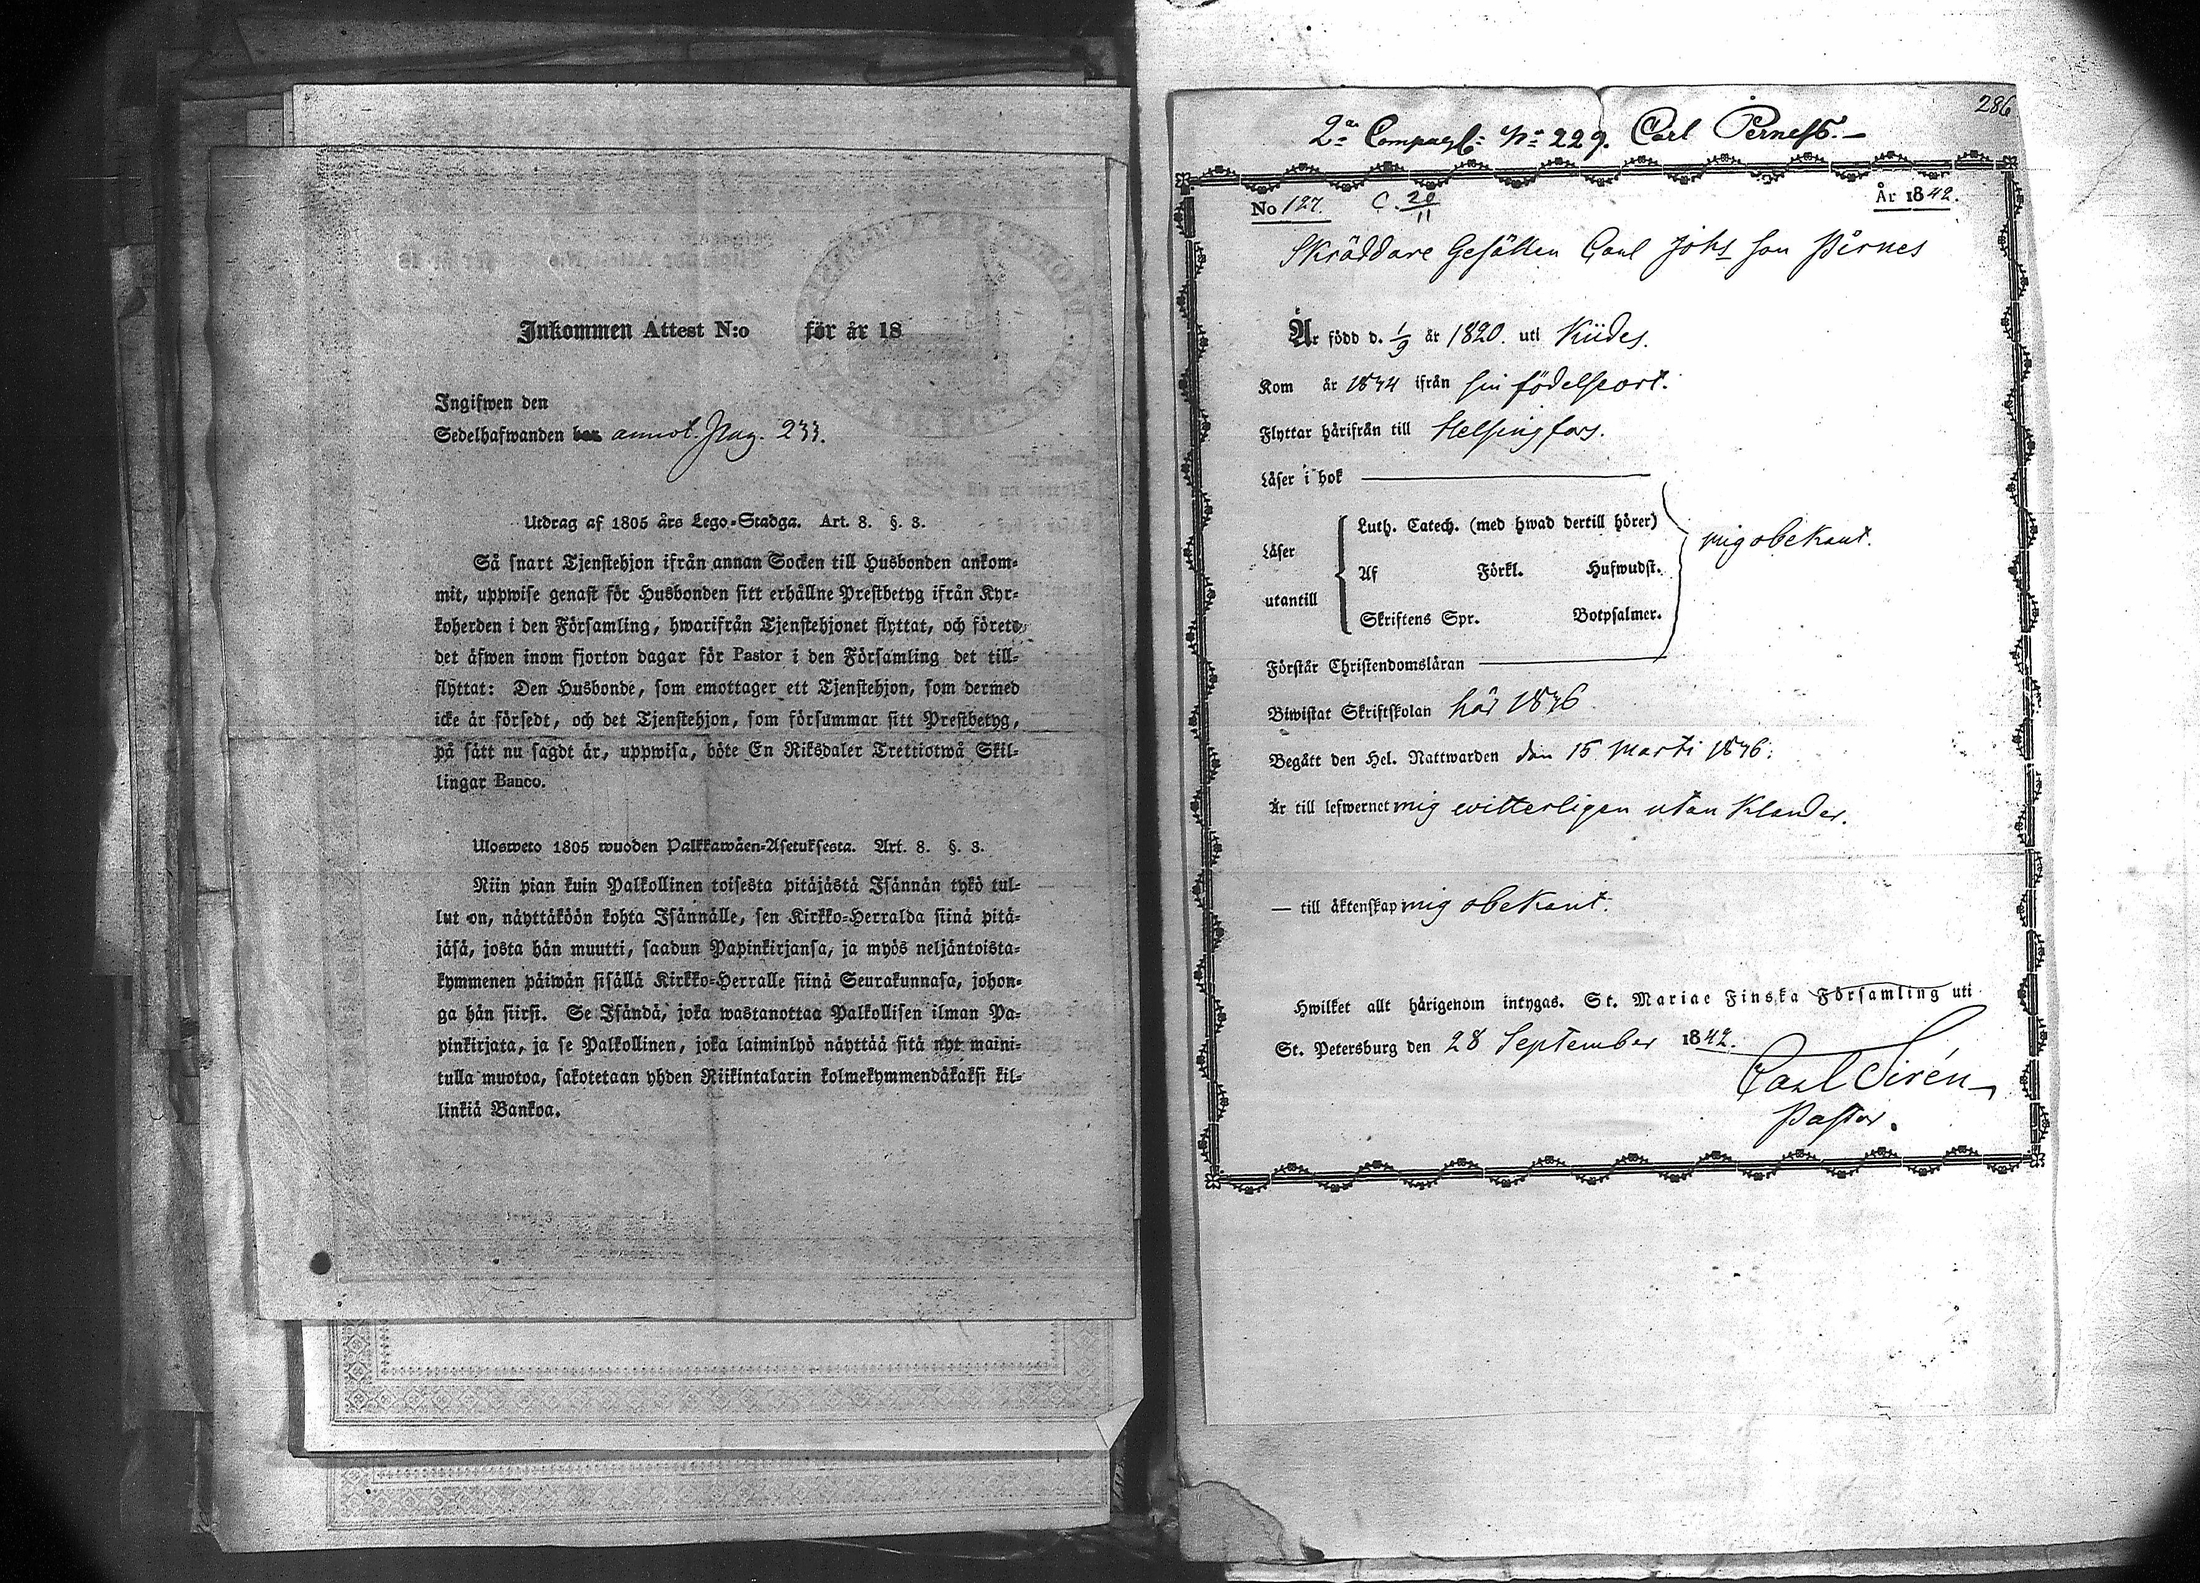 Inkommen Attest N:o för år 18
Ingifwen den
Sedelhafwanden bor annot. Pag. 233.
Utdrag af 1805 års Lego-Stadga. Art. 8. §. 3.
Så snart Tjenstehjon ifrån annan Socken till Husbonden ankom-
mit, uppwise genast för Husbonden sitt erhållne Prestbetyg ifrån Kyr-
koherden i den Församling, hwarifrån Tjenstehjonet flyttat, och förete
det äfwen inom fjorton dagar för Pastor i den Församling det till-
flyttat: Den Husbonde, som emottager ett Tjenstehjon, som dermed
icke är försedt, och det Tjenstehjon, som försummar sitt Prestbetyg,
på sätt nu sagdt är, uppwisa, böte En Riksdaler Trettiotwå Skil-
lingar Banco.
Ulosweto 1805 wuoden Palkkawäen-Asetuksesta. Art. 8. §. 3.
Niin pian kuin Palkollinen toisesta pitäjästä Isännän tykö tul-
lut on, näyttäköön kohta Isännälle, sen Kirkko-Herralda siinä pitä-
jäsä, josta hän muutti, saadun Papinkirjansa, ja myös neljäntoista-
kymmenen päiwän sisällä Kirkko-Herralle siinä Seurakunnasa, johon-
ga hän siirsi. Se Isändä, joka wastanottaa Palkollisen ilman Pa-
pinkirjata, ja se Palkollinen, joka laiminlyö näyttää sitä nyt maini-
tulla muotoa, sakotetaan yhden Riikintalarin kolmekymmendäkaksi kil-
linkiä Bankoa.
286
2a Compagt: No 229. Carl Perness.
No 127. C. 20/11 År 1842.
Skräddare Gesällen Carl Johs son Pärnes
Är född d. 1/9 år 1820. uti Kiides.
Kom år 1834 ifrån sin födelseort.
Flyttar härifrån till Helsingfors.
Läser i bok
Läser utantill
Luth. Catech. (med hwad dertill hörer)
Af Förkl. Hufwudst.
Skriftens Spr. Botpsalmer.
mig obekant.
Förstår Christendomsläran
Biwistat Skriftskolan här 1836
Begått den Hel. Nattwarden den 15 Martii 1836.
Är till lefwernet mig witterligen utan Klander.
— till äktenskap mig obekant.
Hwilket allt härigenom intygas. St. Mariae Finska Församling uti
St. Petersburg den 28 September 1842.
Carl Sirén
Pastor.